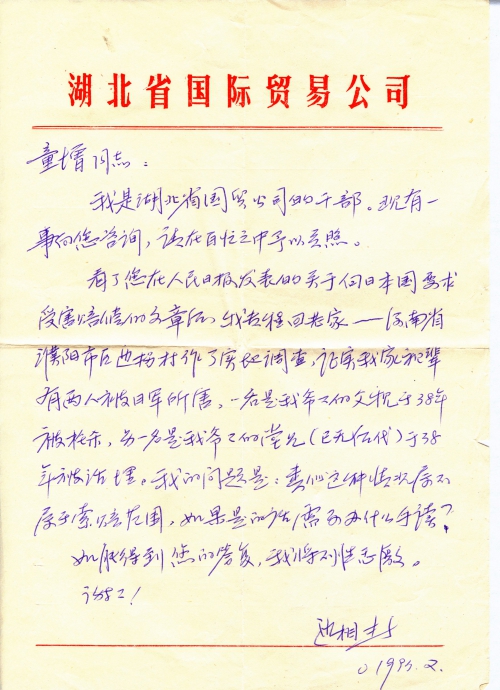 湖北省国际贸易公司
童增同志：
我是湖北省国贸公司的干部。现有一
事向您咨询，请在百忙之中予以关照。
看了您在人民日报发表的关于向日本国要求
受害赔偿的文章后，我专程回老家——河南省
濮阳市区 村作了实地调查，证实我家祖辈
有两人被日军所害，一名是我爷爷的父亲于38年
被枪杀，另一名是我爷爷的堂兄（已无后代）于38
年被活埋。我的问题是：类似这种情况属不
属于索赔范围，如果是的话需要办什么手续？
如能得到您的答复，我们将不胜感激。
谢谢！
相
1993.2.